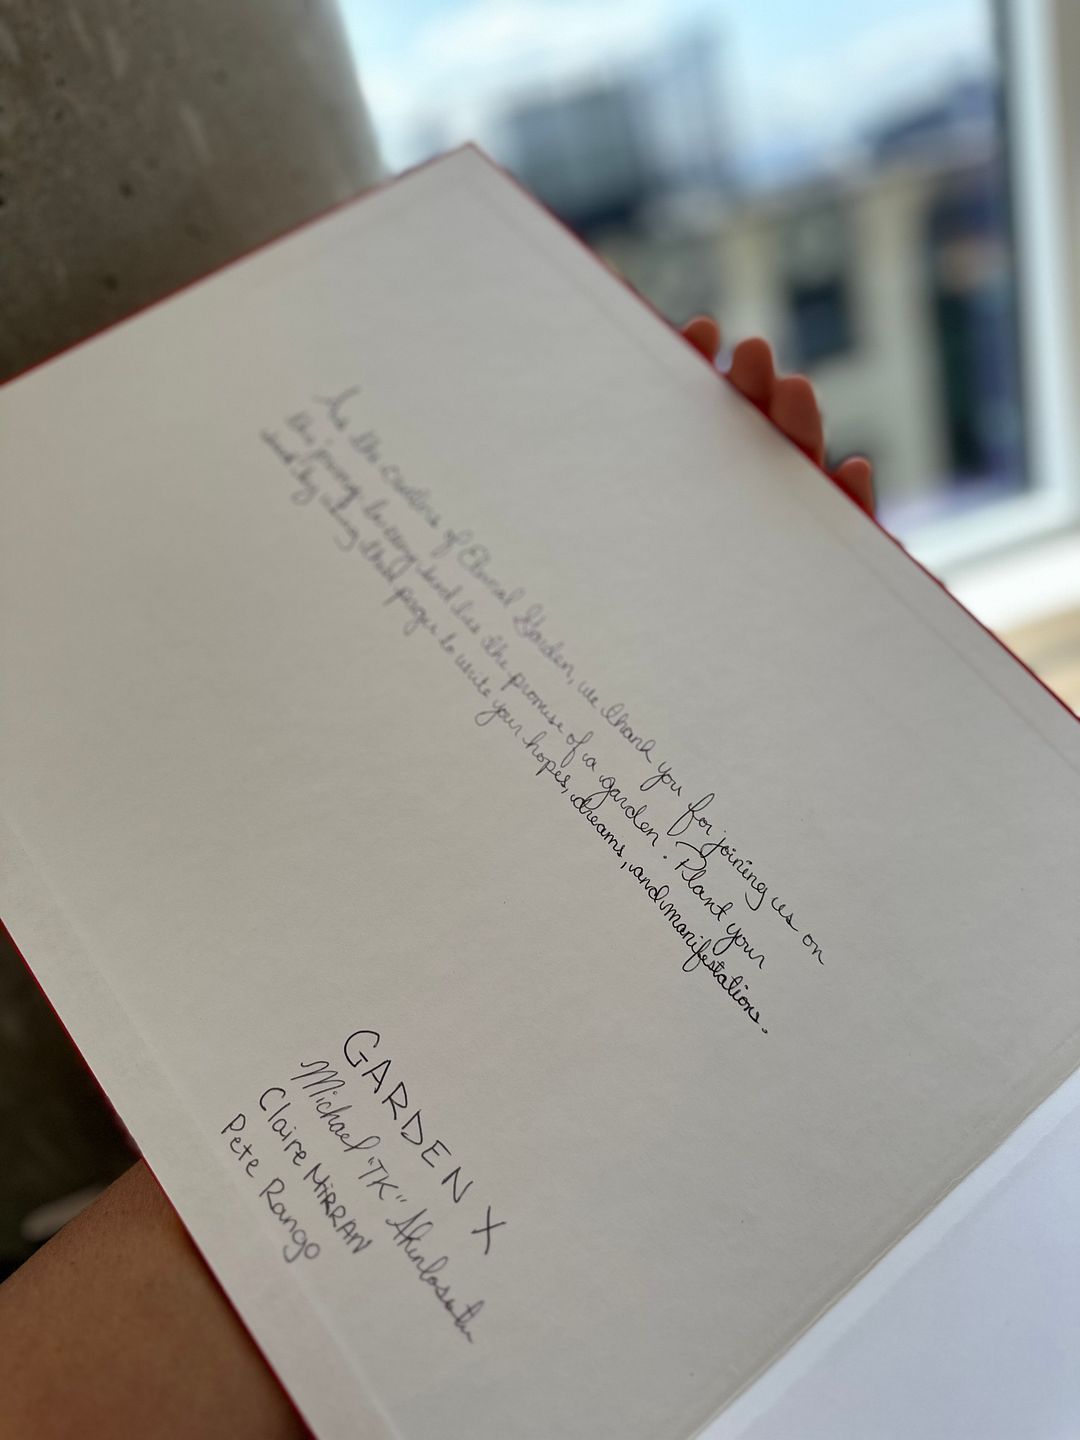 As the creators of Eternal Garden, we thank you for joining us on
this journey. In every seed lies the promise of a garden. Plant your
seed by using these pages to write your hopes, dreams, and manifestations.
GARDEN X
Michael "TK" Akinlosotu
Claire MIRRAN
Pete Rango